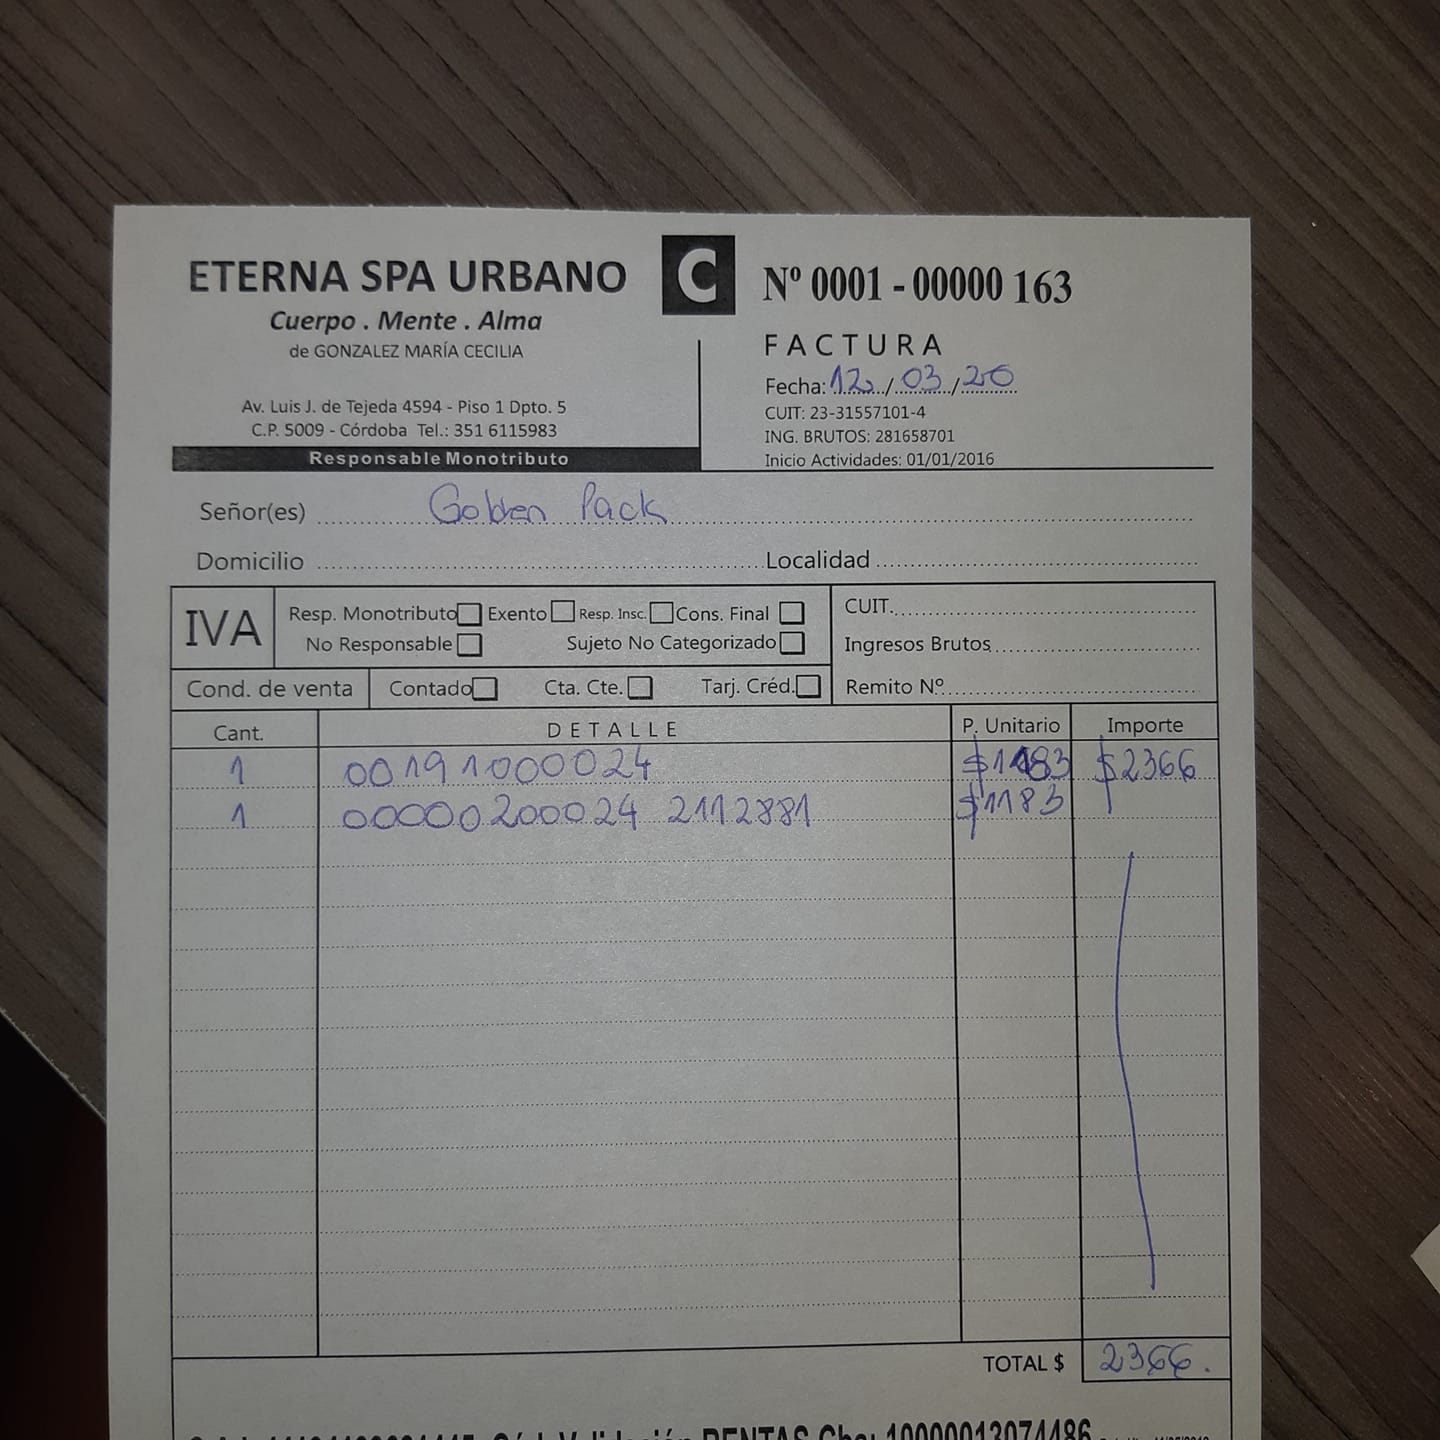 ETERNA SPA URBANO
Cuerpo . Mente . Alma
de GONZALEZ MARÍA CECILIA
Av. Luis J. de Tejeda 4594 - Piso 1 Dpto. 5
C.P. 5009 - Córdoba Tel.: 351 6115983
Responsable Monotributo
C
Nº 0001 - 00000 163
FACTURA
Fecha: 12 / 03 / 20
CUIT: 23-31557101-4
ING. BRUTOS: 281658701
Inicio Actividades: 01/01/2016
Señor(es) Golden Pack
Domicilio Localidad
IVA
Resp. Monotributo Exento Resp. Insc. Cons. Final
No Responsable Sujeto No Categorizado
CUIT.
Ingresos Brutos
Cond. de venta Contado Cta. Cte. Tarj. Créd. Remito Nº
Cant. DETALLE P. Unitario Importe
1 00191000024 $1183 $2366
1 00000200024 2112881 $1183
TOTAL $ 2366.
Validación RENTAS Cba: 10000013074486